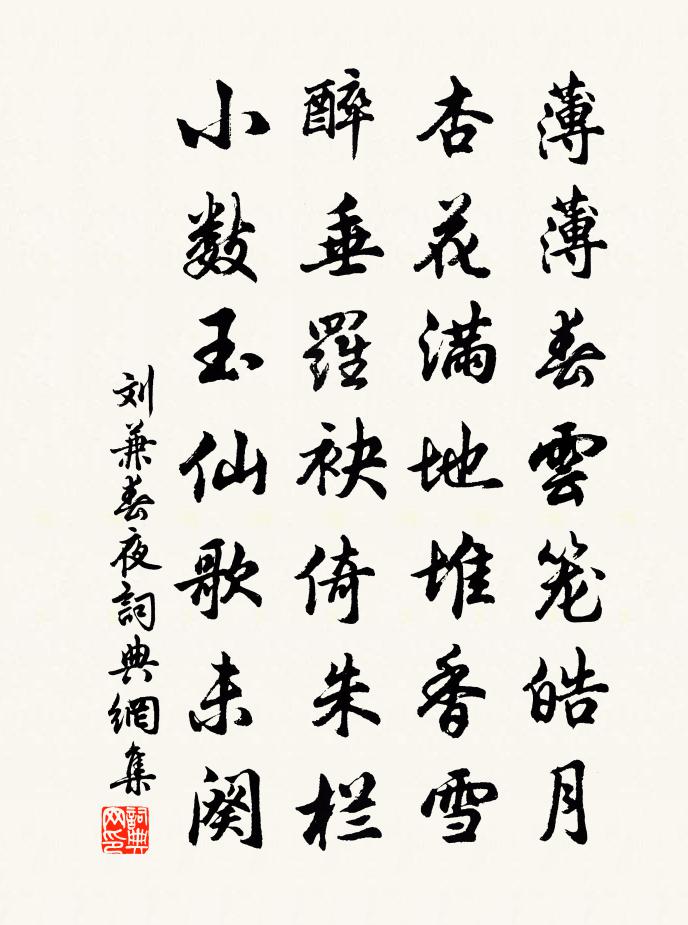 薄薄春雲笼皓月
杏花满地堆香雪
醉垂羅袂倚朱栏
小数玉仙歌未阕
刘兼春夜詞典網集
詞典网印